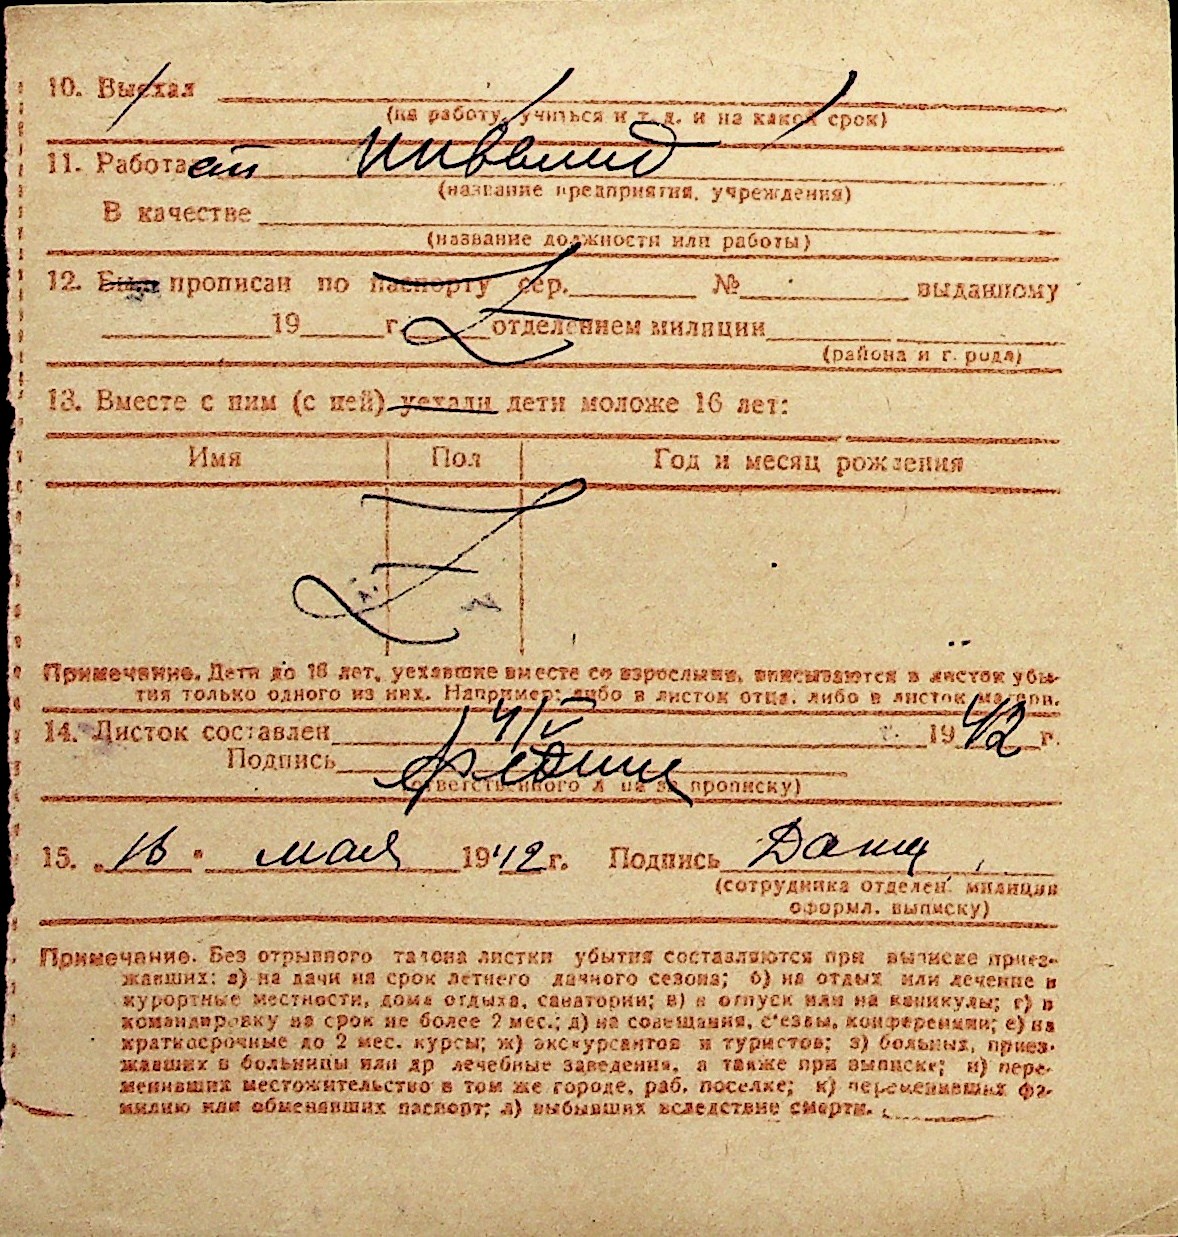 10. Выехал
(на работу, учиться и т. д. и на какой срок)
11. Работает инвалид
(название предприятия, учреждения)
В качестве
(название должности или работы)
12. Был прописан по паспорту сер. № выданному
19 г. отделением милиции
(района и г. рода)
13. Вместе с ним (с ней) уехали дети моложе 16 лет:
Имя Пол Год и месяц рождения
Примечание. Дети до 16 лет, уехавшие вместе со взрослыми, вписываются в листок убы-
тия только одного из них. Например: либо в листок отца, либо в листок матери.
14. Листок составлен 14/V 1942 г.
Подпись
(ответственного л на за прописку)
15. „16" мая 1942 г. Подпись
(сотрудника отделен. милиции
оформл. выписку)
Примечание. Без отрывного талона листки убытия составляются при выписке приез-
жавших: а) на дачи на срок летнего дачного сезона; б) на отдых или лечение в
курортные местности, дома отдыха, санатории; в) в отпуск или на каникулы; г) в
командировку на срок не более 2 мес.; д) на совещания, с'езды, конференции; е) на
краткосрочные до 2 мес. курсы; ж) экскурсантов и туристов; з) больных, приез-
жавших в больницы или др лечебные заведения, а также при выписке; и) пере-
менивших местожительство в том же городе, раб. поселке; к) переменивших фа-
милию или обменявших паспорт; л) выбывших вследствие смерти.